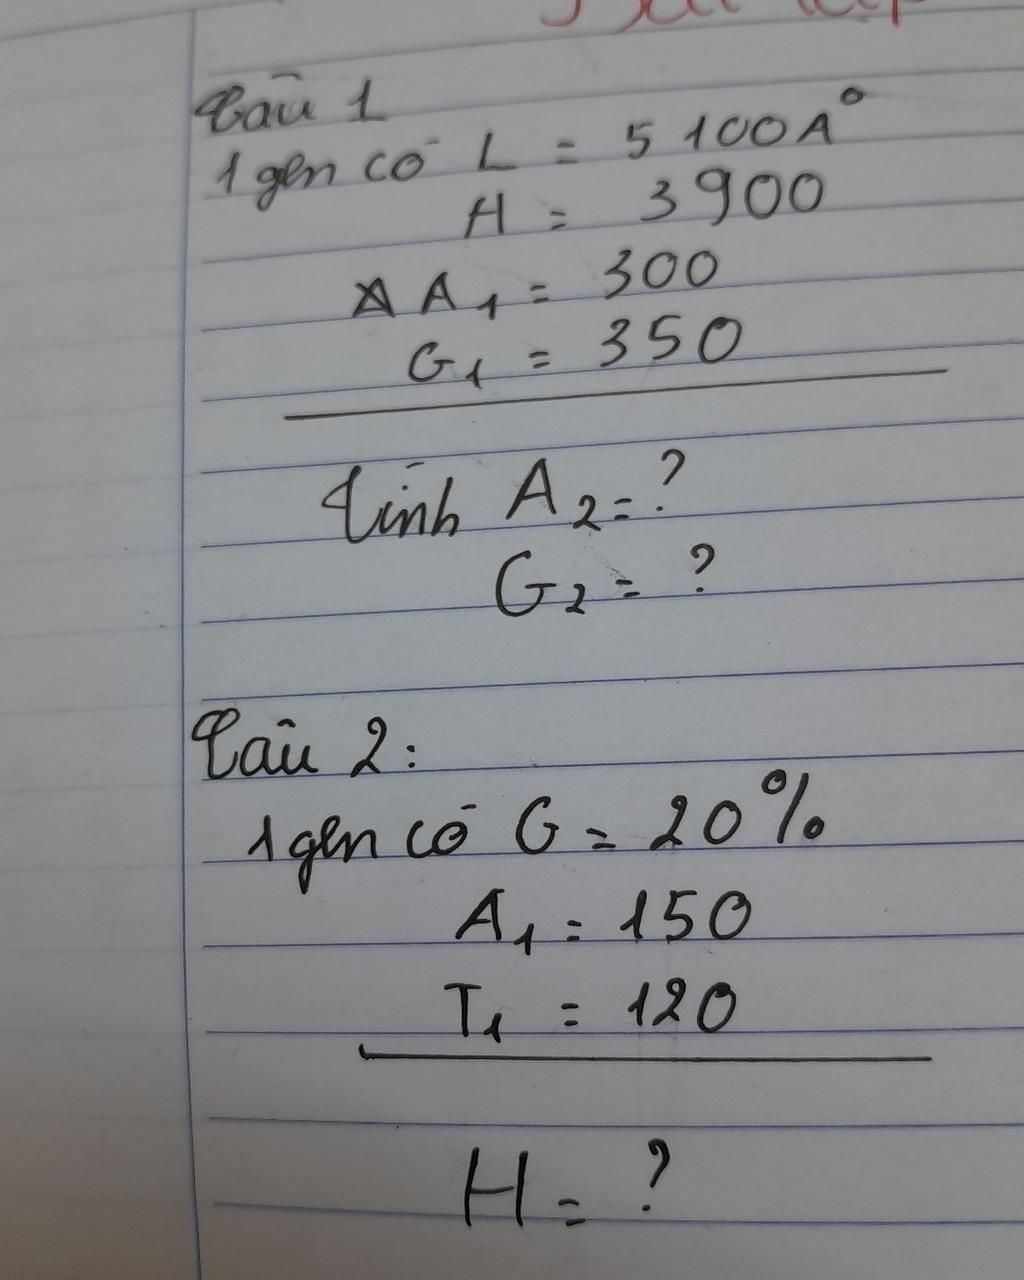 Câu 1
1 gen có L = 5100A°
H = 3900
A A1 = 300
G1 = 350
tính A2 = ?
G2 = ?
Câu 2:
1 gen có G = 20%
A1 = 150
T1 = 120
H = ?